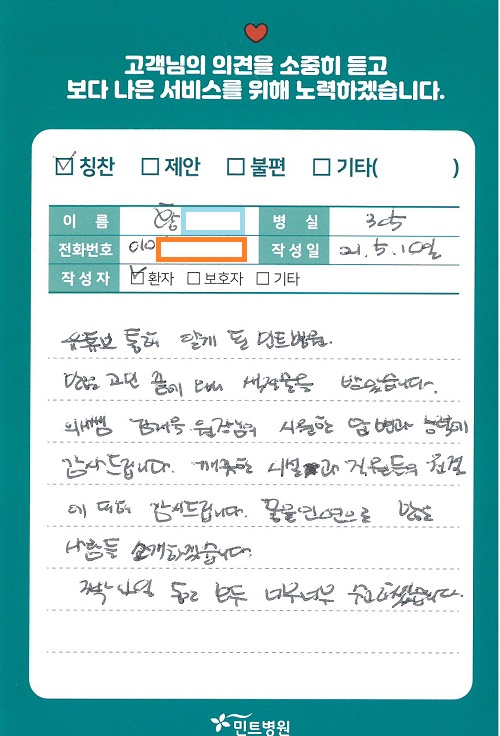 고객님의 의견을 소중히 듣고
보다 나은 서비스를 위해 노력하겠습니다.
☑ 칭찬 ☐ 제안 ☐ 불편 ☐ 기타( )
이 름 황 병 실 305
전화번호 010 작성일 21. 5. 10일
작성자 ☑환자 ☐보호자 ☐기타
유튜브 통해 알게 된 민트병원.
고민 끝에 새 을 받았습니다.
의 쌤 김재욱 원장님의 시원한 답변과 능력에
감사드립니다. 깨끗한 시설과 직원들의 친절
에 더더 감사드립니다. 좋은인연으로 많은
사람들 소개하겠습니다.
동안 모두 너무너무 수고하셨습니다.
민트병원